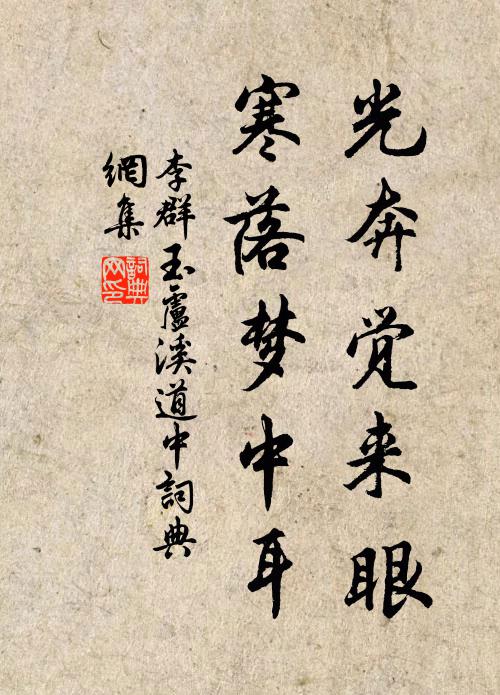 光奔觉来眼
寒落梦中耳
李群玉盧溪道中詞典
網集
詞典網印